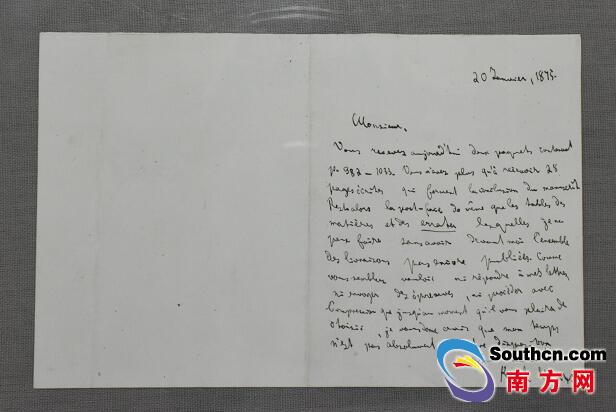 20 Janvier, 1875.
Monsieur,
Vous recevez aujourd'hui deux paquets contenant
pp. 982 – 1033. Vous n'avez plus qu'à recevoir 28
pages écrites qui forment la conclusion du manuscrit.
Reste alors la post-face de même que les tables des
matières et des errata lesquelles je ne
peux faire sans avoir devant moi l'ensemble
des livraisons pas encore publiées. Comme
vous semblez vouloir ni répondre à mes lettres
ni envoyer des épreuves, ni procéder avec
l'impression que jusqu'au moment qu'il vous plaira de
choisir, je vous donne avis que mon temps
n'est pas absolument disposition
Southcn.com
南方网